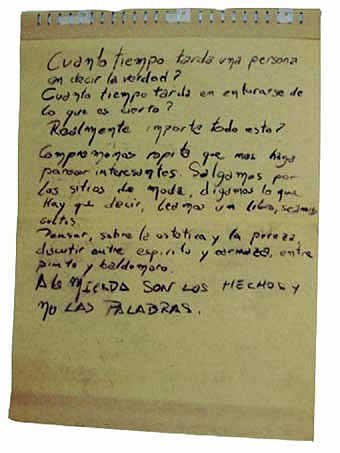 Cuanto tiempo tarda una persona
en decir la verdad?
Cuanto tiempo tarda en enturarse de
lo que es cierto?
Realmente importa todo esto?
Compremonos ropita que nos haga
parecer interesantes. Salgamos por
los sitios de moda, digamos lo que
Hay que decir, leamos un libro, seamos
cultos.
Pensar, sobre la estetica y la pureza,
discutir entre espiritu y carnaza, entre
pinto y baldomoro.
A LA MIERDA SON LOS HECHOS Y
NO LAS PALABRAS.